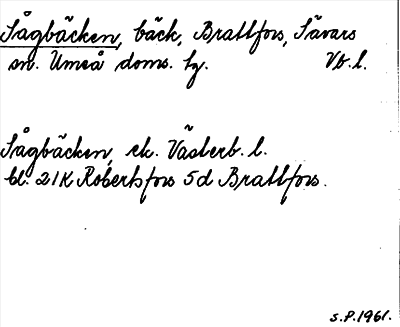 Sågbäcken, bäck, Brattfors, Sävars
sn. Umeå doms. hg. Vb. l.
Sågbäcken, ek. Västerb. l.
bl. 21K Robertsfors 5d Brattfors.
S.P. 1961.